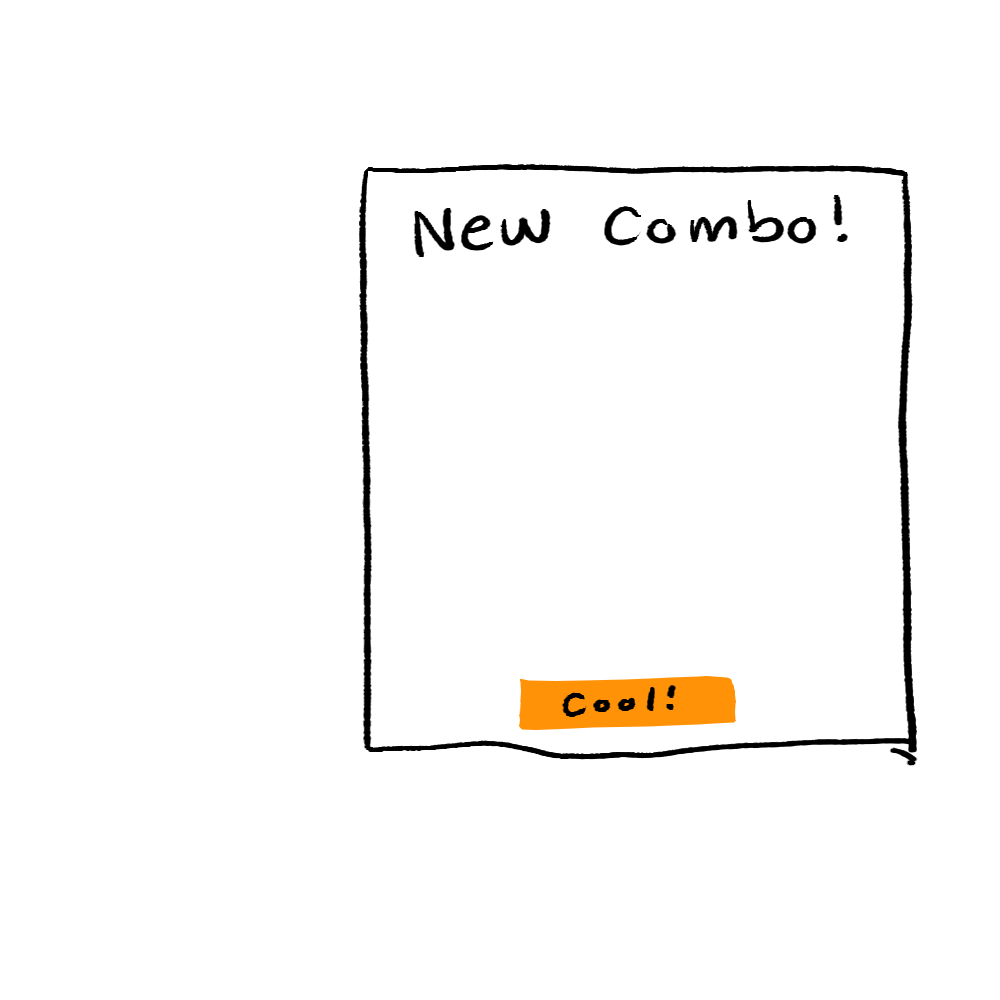 New Combo!
Cool!